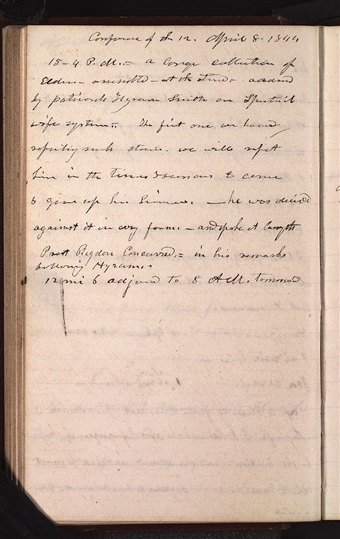 Conference of the 12. April 8. 1844
15-4 P.M. - a large collection of
Elders - assembled - at the stand. addressed
by patriarch Hyrum Smith on Spiritual
wife system. The first one we hear
reporting such stories. we will report
him in the Times & Seasons to come
& give up his license. - he was decided
against it in every form. - and spoke at length
Prest Rigdon Concurred. - in his remarks
following Hyrum.
12 mi 6 adjourned to 8 A M. tomorrow